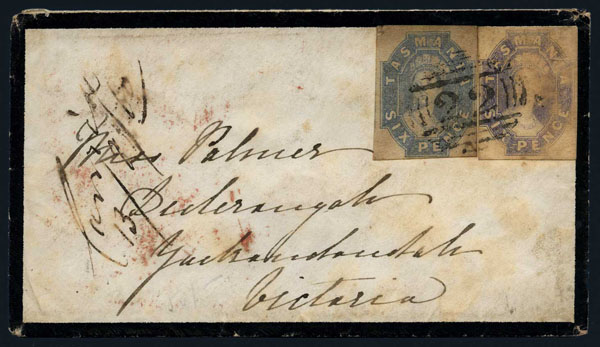 TASMAN
SIX PENCE
TASMAN
SIX PENCE
Miss Palmer
Dederangah
Yackandandah
Victoria